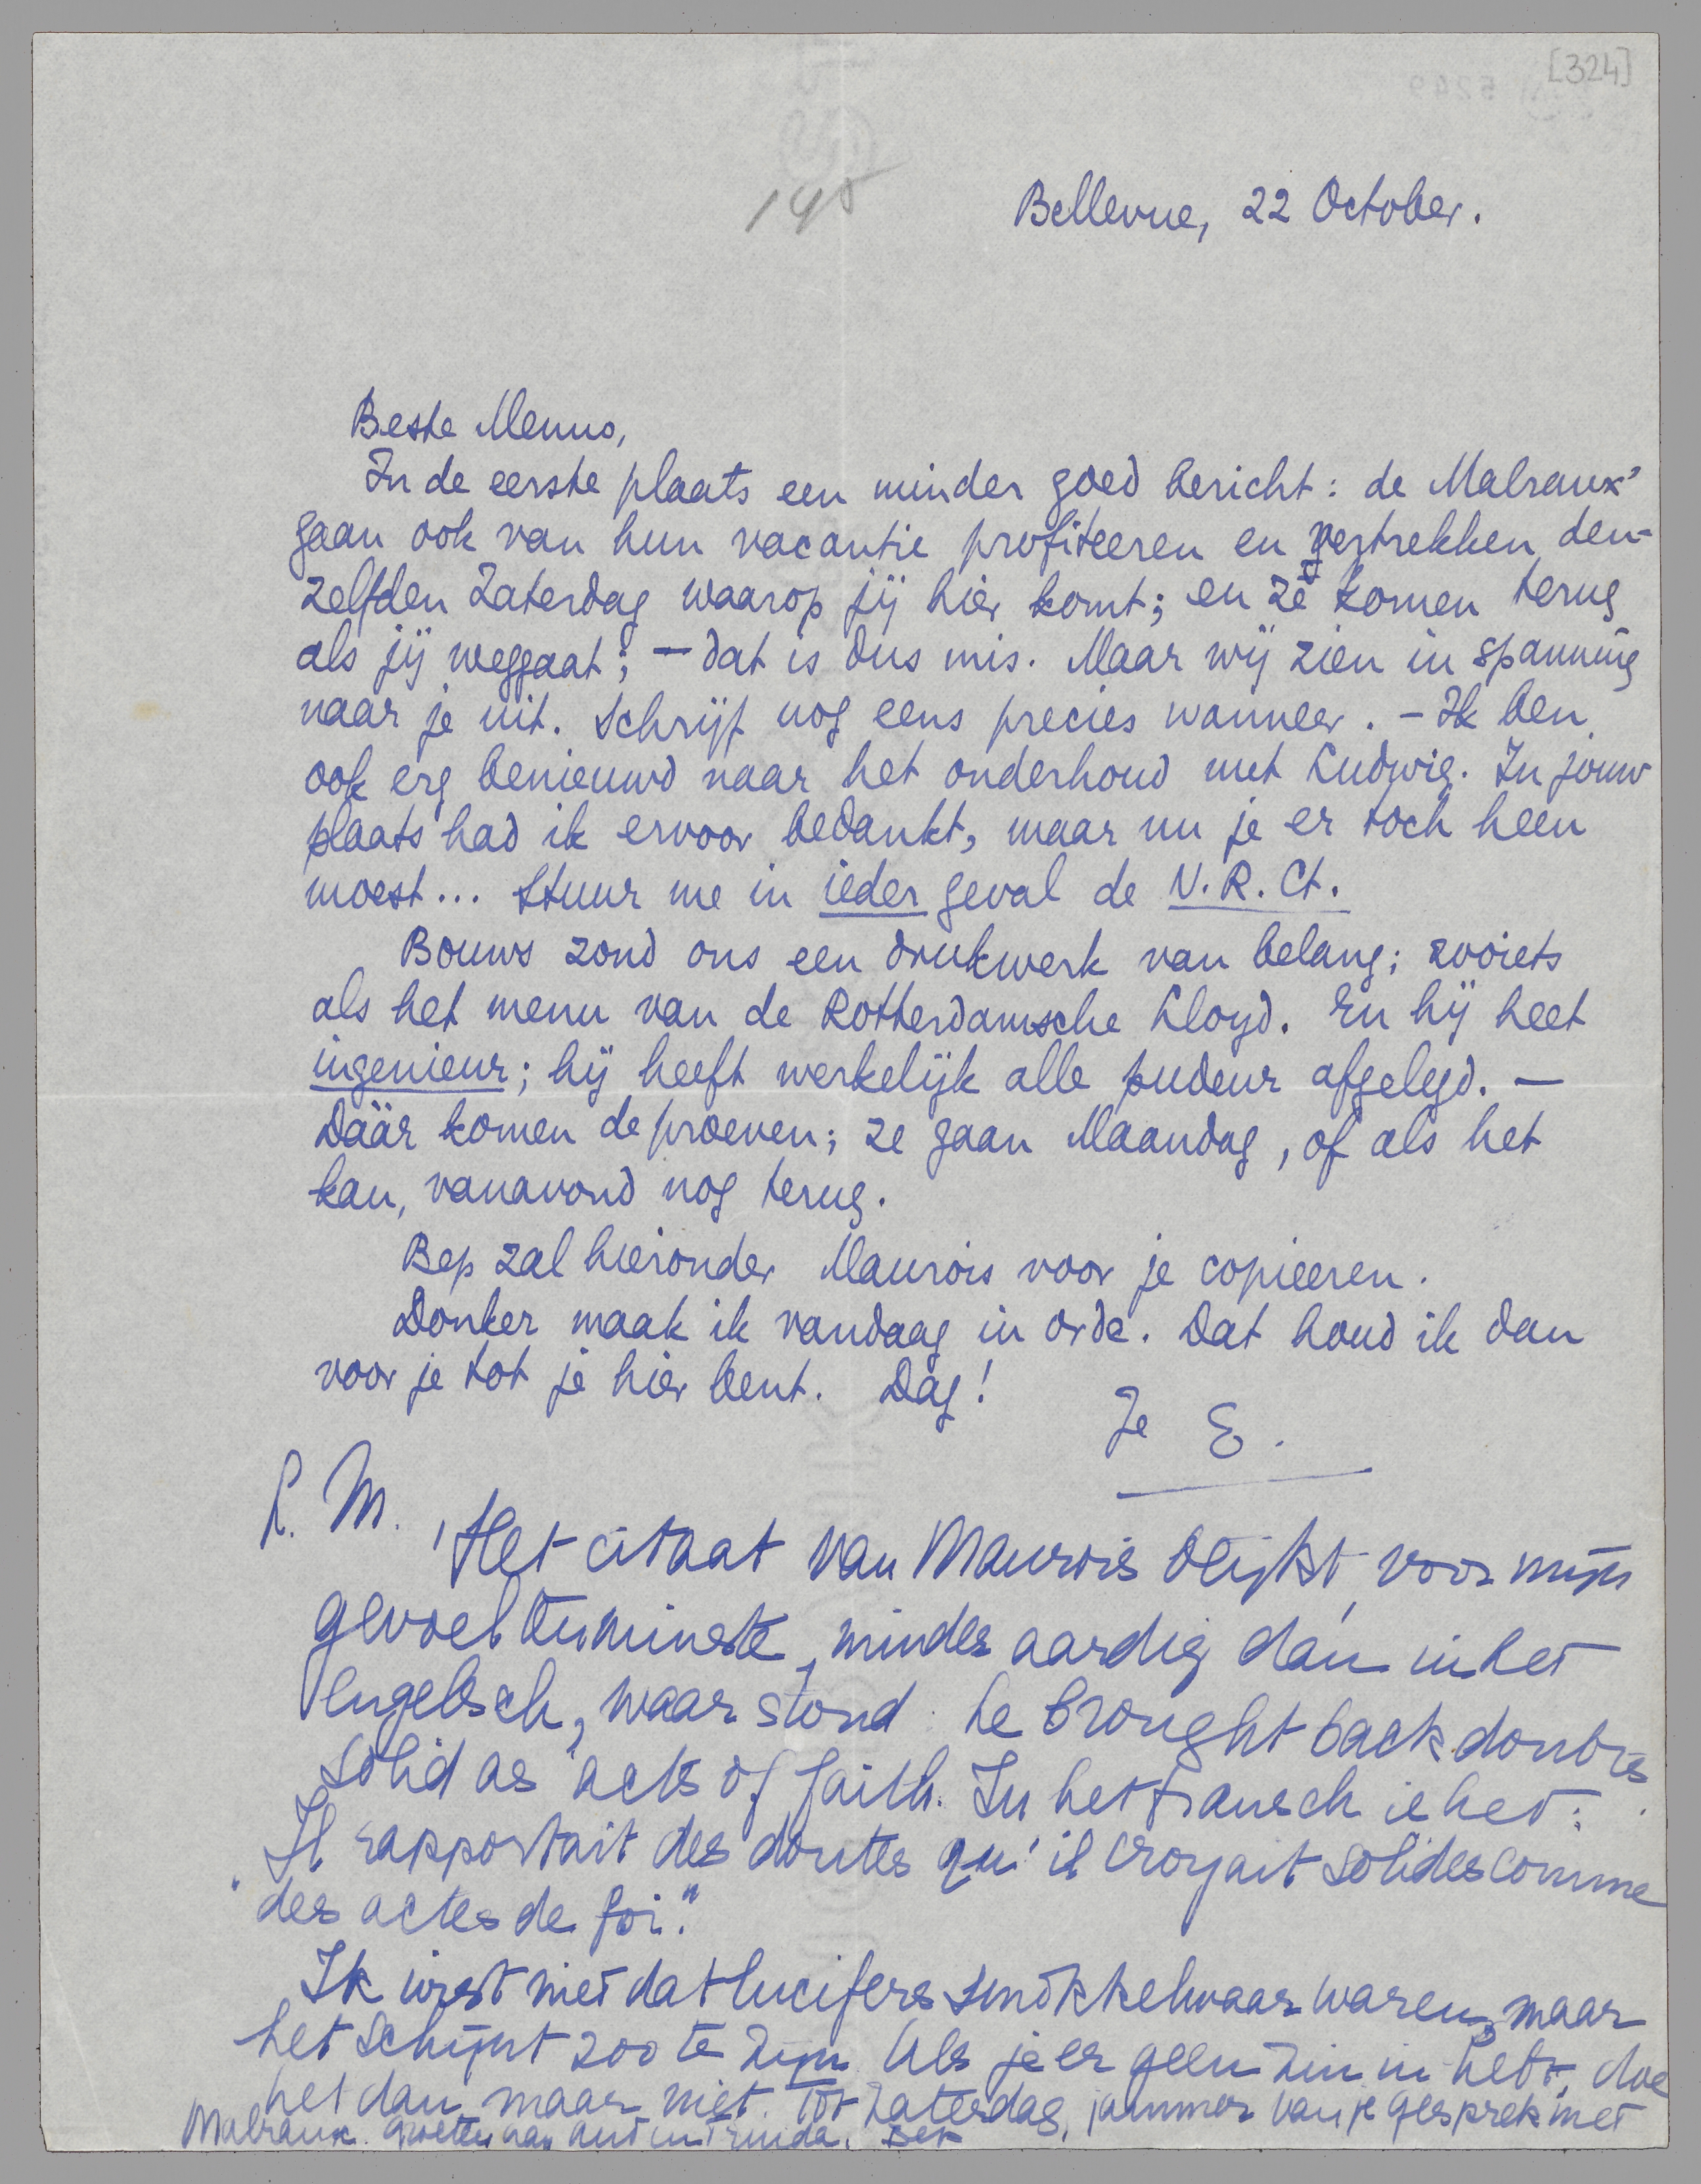 [324]
Bellevue, 22 October.
Beste Menno,
In de eerste plaats een minder goed bericht: de Malraux'
gaan ook van hun vacantie profiteeren en vertrekken den-
zelfden Zaterdag waarop jij hier komt; en ze komen terug
als jij weggaat; — dat is dus mis. Maar wij zien in spanning
naar je uit. Schrijf nog eens precies wanneer. – Ik ben
ook erg benieuwd naar het onderhoud met Ludwig. In jouw
plaats had ik ervoor bedankt, maar nu je er toch heen
moest... Stuur me in ieder geval de N.R.Ct.
Bouws zond ons een drukwerk van belang; zooiets
als het menu van de Rotterdamsche Lloyd. En hij heet
ingenieur; hij heeft werkelijk alle pudeur afgelegd. —
Dáár komen de proeven; ze gaan Maandag, of als het
kan, vanavond nog terug.
Bep zal hieronder Maurois voor je copieeren.
Donker maak ik vandaag in orde. Dat houd ik dan
voor je tot je hier bent. Dag!
Je E.
L. M.
Het citaat van Maurois blijkt, voor mijn
gevoel tenminste, minder aardig dan in het
Engelsch, waar stond: he brought back doubts
solid as acts of faith. In het Fransch is het:
"Il rapportait des doutes qu'il croyait solides comme
des actes de foi."
Ik wist niet dat lucifers smokkelwaar waren, maar
het schijnt zoo te zijn. Als je er geen zin in hebt, doe
het dan maar niet. Tot Zaterdag, jammer van je gesprek met
Malraux. Groeten van aan Truida. Bep